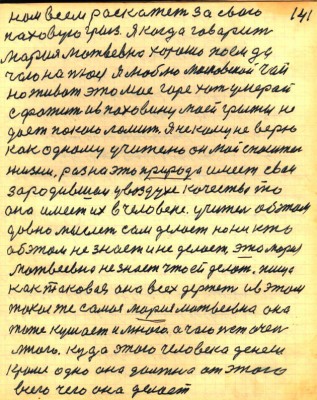 141
нам всем раскажет за свою
паховую грыз. Я когда говарит
Мария Матвевно хорошо поем да
чаю напюсь я люблю Маковской чай
но живот это мае горе хот умерай
с фатит и в паховину маей грыжы не
дает покою ламит. Я некаму не верю
как одному учителю он мой спаситель
жизни, раз на это природа имеет сваи
зародившии у воздухе качества то
она имеет их в человеке. учител об этом
давно мыслет сам делает но ни кто
об этом не знает и не делает, это мария
матвеевно не знает что ей делат. пища
как таковая она всех держет и в этом
токое же самая мария матвевна она
тоже кушает и много а чаю пет очен
много. куда этого человека денеш
кроме одно она должна от этого
всего чего она делает